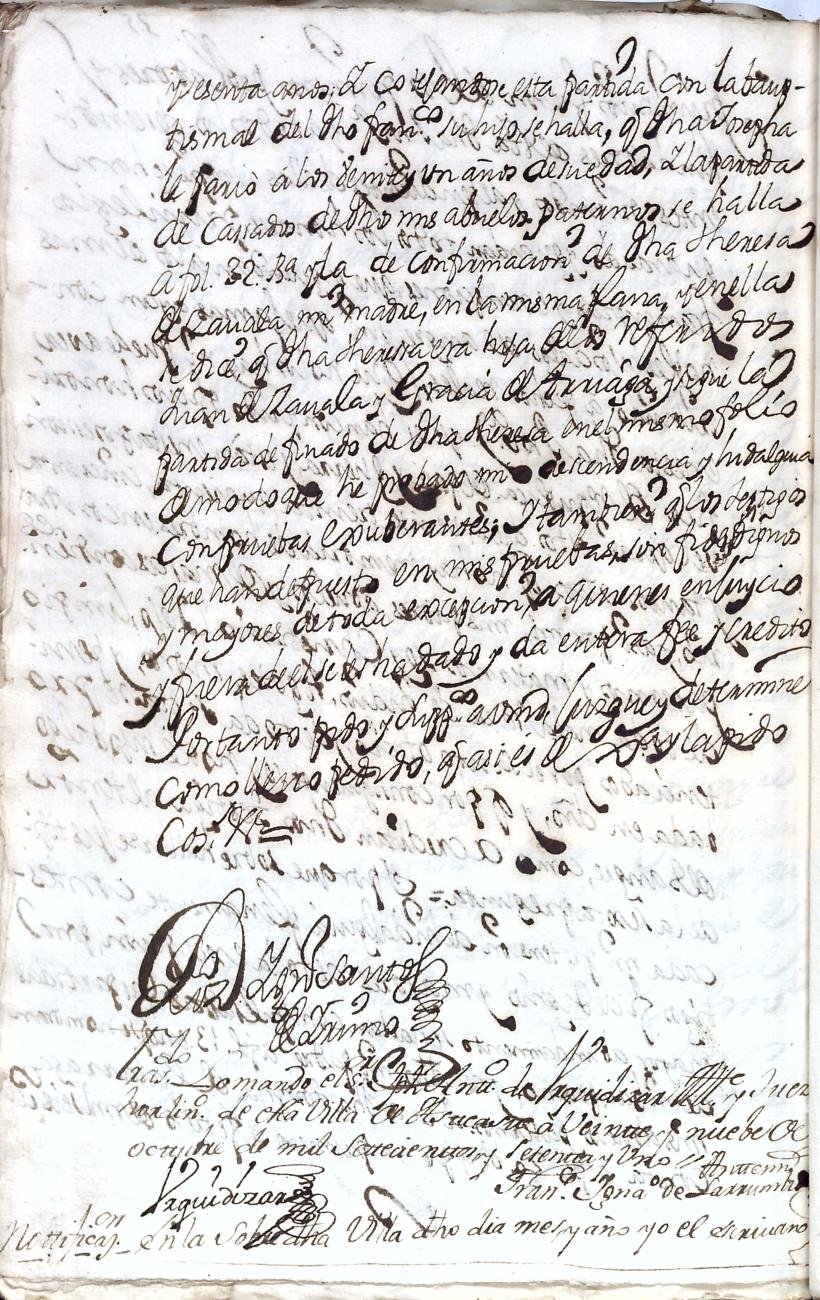 y sesenta anos; Y cotejandose esta partida con la baup-
tismal del dho fran.co su hijo, se halla, q dha Josepha
le pario a los veinte y un años de su edad, Y la partida
de Cassados de dho mis abuelos paternos se halla
a fol. 32. B.ta y la de Confirmacion de dha Theresa
de Zavala mi madre, en la misma plana, y en ella
se dice, q dha Theresa era hija de los referidos
Juan de Zavala y Gracia de Arriaga, y sigue la
partida de finado de dha Theresa en el mismo folio
De modo que he probado mi descendencia y hidalguia
con pruebas exuberantes; Y tambien q los testigos
que han depuesto en mis pruebas, son fidedignos
y mayores de toda excepcion, a quienes en juycio
y fuera de el se les ha dado y da entera fee y credito
Por tanto pido y supp.co a vmd. juzgue y determine
Como llevo pedido, q asi es de Just.a y la pido
Costas
Santos
tras.do Lo mando el S.r de Urquidizar Alc.e y Juez
hordin.o de esta Villa de a Veinte y nuebe de
octubre de mil Setecientos y Setenta y Uno // Antemi
Urquidizar Fran.co Igna.o de Larrumbi
Nottificaz.on En la Sobre dha Villa dho dia mes y año yo el escrivano